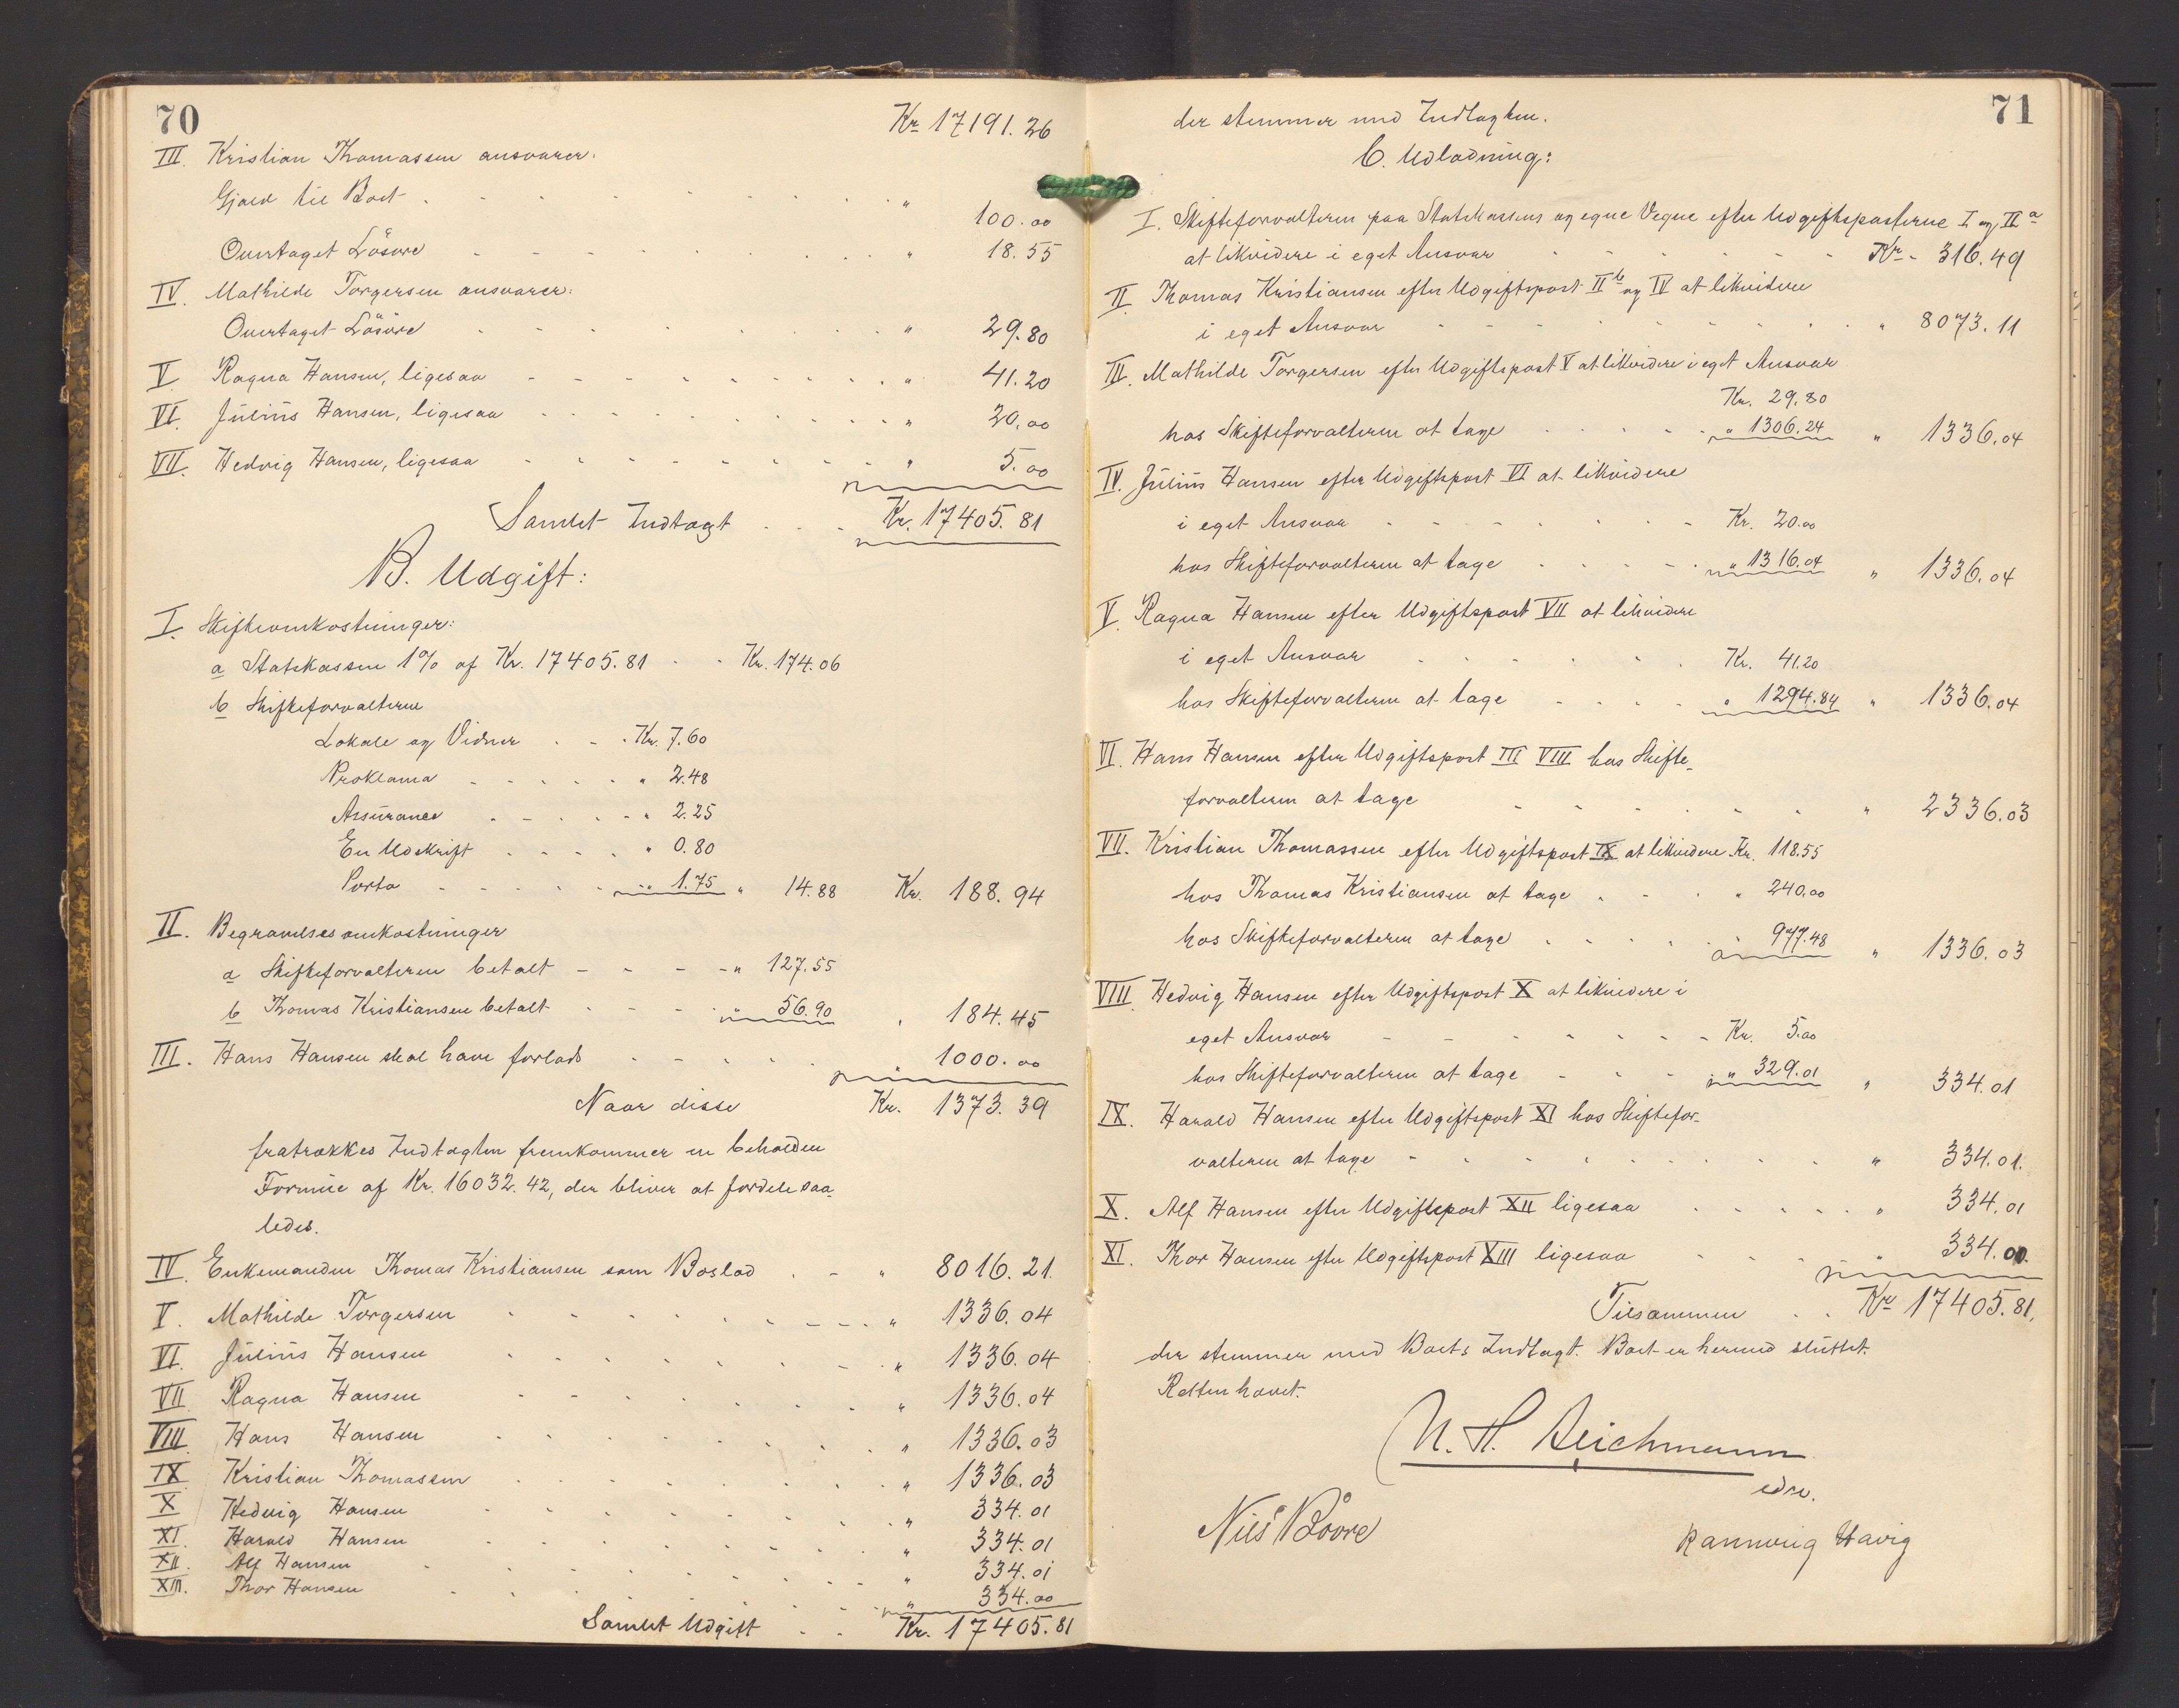 70
Kr 17191.26
III. Kristian Thomassen ansvarer:
Gjæld til Boet . . . " 100.00
Overtaget Løsøre - - - " 18.55
IV. Mathilde Torgersen ansvarer:
Overtaget Løsøre - - - " 29.80
V. Ragna Hansen, ligesaa - - - " 41.20
VI. Julius Hansen, ligesaa . . . " 20.00
VII. Hedvig Hansen, ligesaa - - - " 5.00
Samlet Indtægt . . . Kr. 17405.81
B. Udgift:
I. Skifteomkostninger:
a Statskassen 1% af Kr. 17405.81 - - Kr. 174.06
b Skifteforvalteren
Lokale og Vidner . - . Kr. 7.60
Proklama - - - " 2.48
Assurance - - - " 2.25
En Udskrift . . . " 0.80
Porto - - - " 1.75 " 14.88 Kr. 188.94
II. Begravelsesomkostninger
a Skifteforvalteren betalt - - - " 127.55
b Thomas Kristiansen betalt - - - " 56.90 " 184.45
III. Hans Hansen skal have forlods - - - " 1000.00
Naar disse Kr. 1373.39
fratrækkes Indtægten fremkommer en beholden
Formue af Kr. 16032.42, der bliver at fordele saa-
ledes.
IV. Enkemanden Thomas Kristiansen som Boslod . - " 8016.21.
V. Mathilde Torgersen - - - " 1336.04
VI. Julius Hansen - - - " 1336.04
VII. Ragna Hansen - - - " 1336.04
VIII. Hans Hansen - - - " 1336.03
IX Kristian Thomassen - - - " 1336.03
X Hedvig Hansen - - - " 334.01
XI. Harald Hansen - - - " 334.01
XII. Alf Hansen - - - " 334.01
XIII. Thor Hansen - - - " 334.00
Samlet Udgift . . Kr. 17405.81
71
der stemmer med Indtægten.
C. Udlodning:
I. Skifteforvalteren paa Statskassens og egne Vegne efter Udgiftsposterne I og II a
at likvidere i eget Ansvar - - - Kr. 316.49
II. Thomas Kristiansen efter Udgiftspost II b og IV at likvidere
i eget Ansvar - - - " 8073.11
III. Mathilde Torgersen efter Udgiftspost V at likvidere i eget Ansvar
Kr. 29.80
hos Skifteforvalteren at tage . . . " 1306.24 " 1336.04
IV. Julius Hansen efter Udgiftspost VI at likvidere
i eget Ansvar - - - Kr. 20.00
hos Skifteforvalteren at tage . . . " 1316.04 " 1336.04
V. Ragna Hansen efter Udgiftspost VII at likvidere
i eget Ansvar - - - Kr. 41.20
hos Skifteforvalteren at tage - - - " 1294.84 " 1336.04
VI. Hans Hansen efter Udgiftspost III VIII hos Skifte-
forvalteren at tage - - - " 2336.03
VII. Kristian Thomassen efter Udgiftspost IX at likvidere Kr. 118.55
hos Thomas Kristiansen at tage . - . " 240.00
hos Skifteforvalteren at tage . . . " 977.48 " 1336.03
VIII Hedvig Hansen efter Udgiftspost X at likvidere i
eget Ansvar - - - Kr. 5.00
hos Skifteforvalteren at tage - - - " 329.01 " 334.01
IX. Harald Hansen efter Udgiftspost XI hos Skiftefor-
valteren at tage - - - " 334.01.
X. Alf Hansen efter Udgiftspost XII ligesaa . . . " 334.01
XI. Thor Hansen efter Udgiftspost XIII ligesaa - - - " 334.00.
Tilsammen . . Kr 17405.81.
der stemmer med Boets Indtægt. Boet er hermed sluttet.
Retten hævet.
N. H. Aeichmann
edsv.
Nils Boore
Rannveig Havig